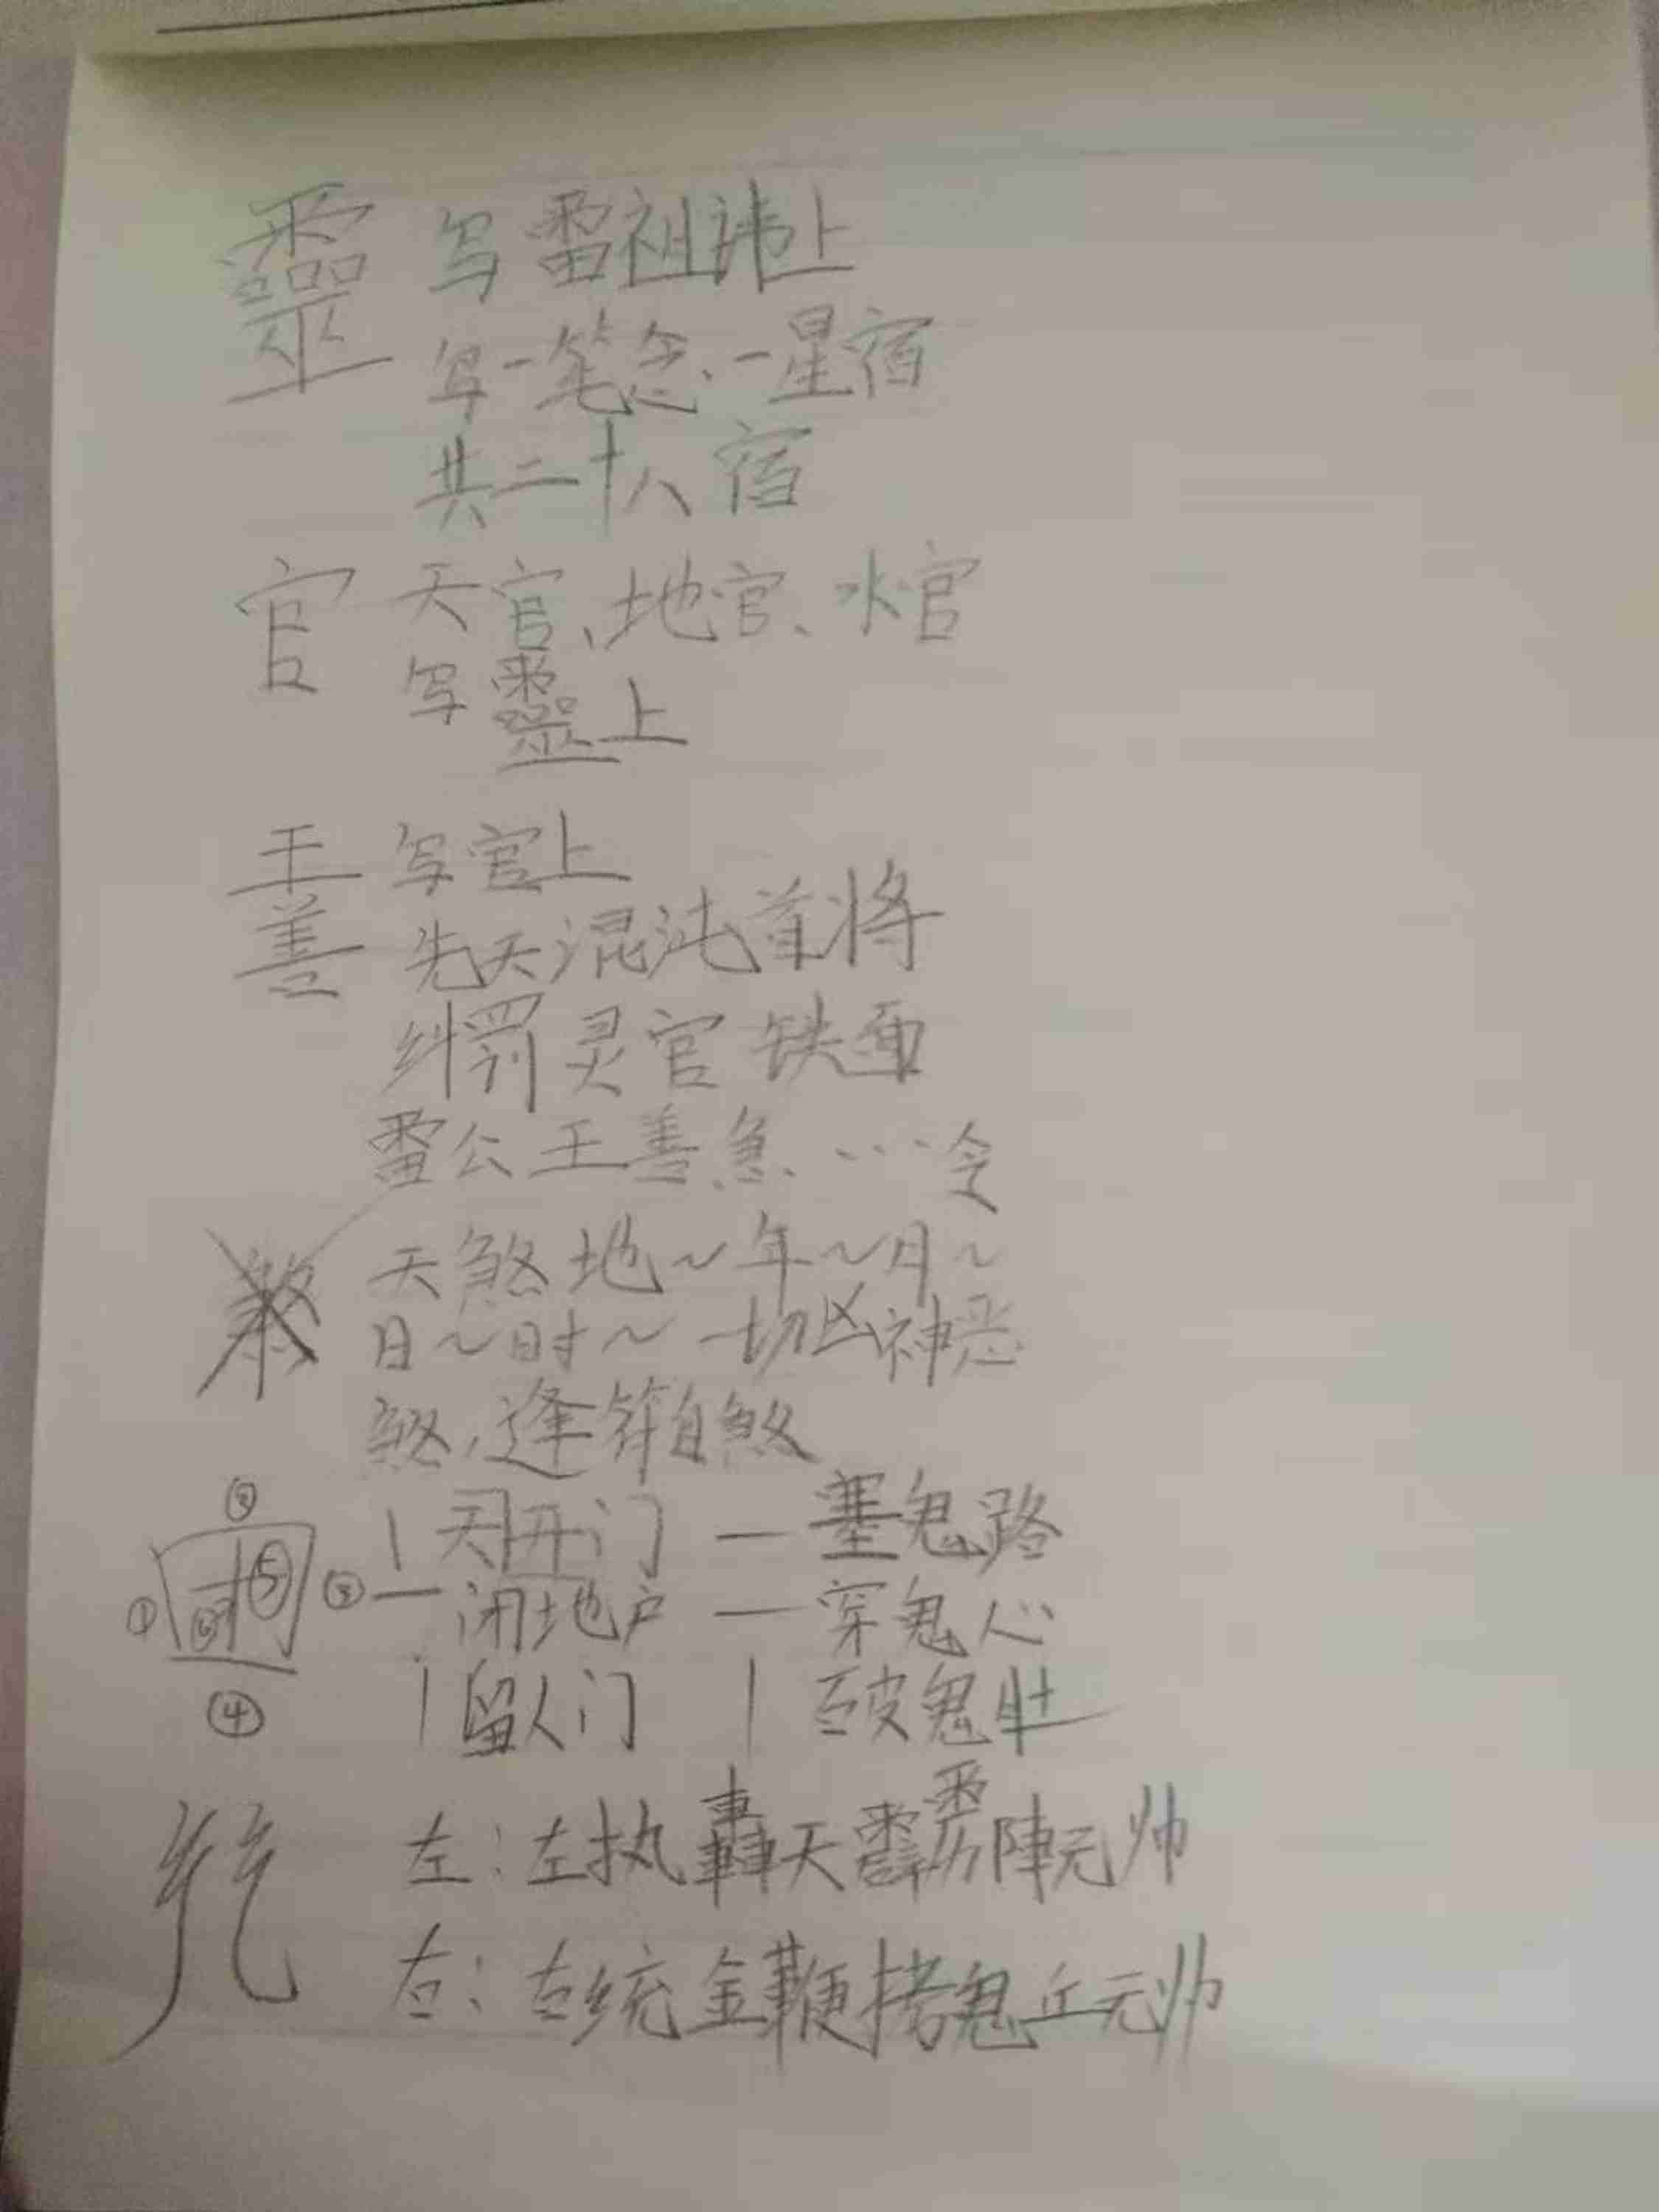 靈 写雷祖讳上
写一笔念一星宿
共二十八宿
官 天官、地官、水官
写靈上
王善 写官上
先天混沌首将
纠罚灵官铁面
雷公王善急…令
煞 天煞地~年~月~
日~时~一切凶神恶
煞,逢符自煞
② 丨天开门 一塞鬼路
① ⑤ ⑥ ③ 一闭地户 一穿鬼心
④ 丨留人门 丨破鬼肚
左:左执轟天霹雳陣元帅
右:右统金鞭拷鬼丘元帅